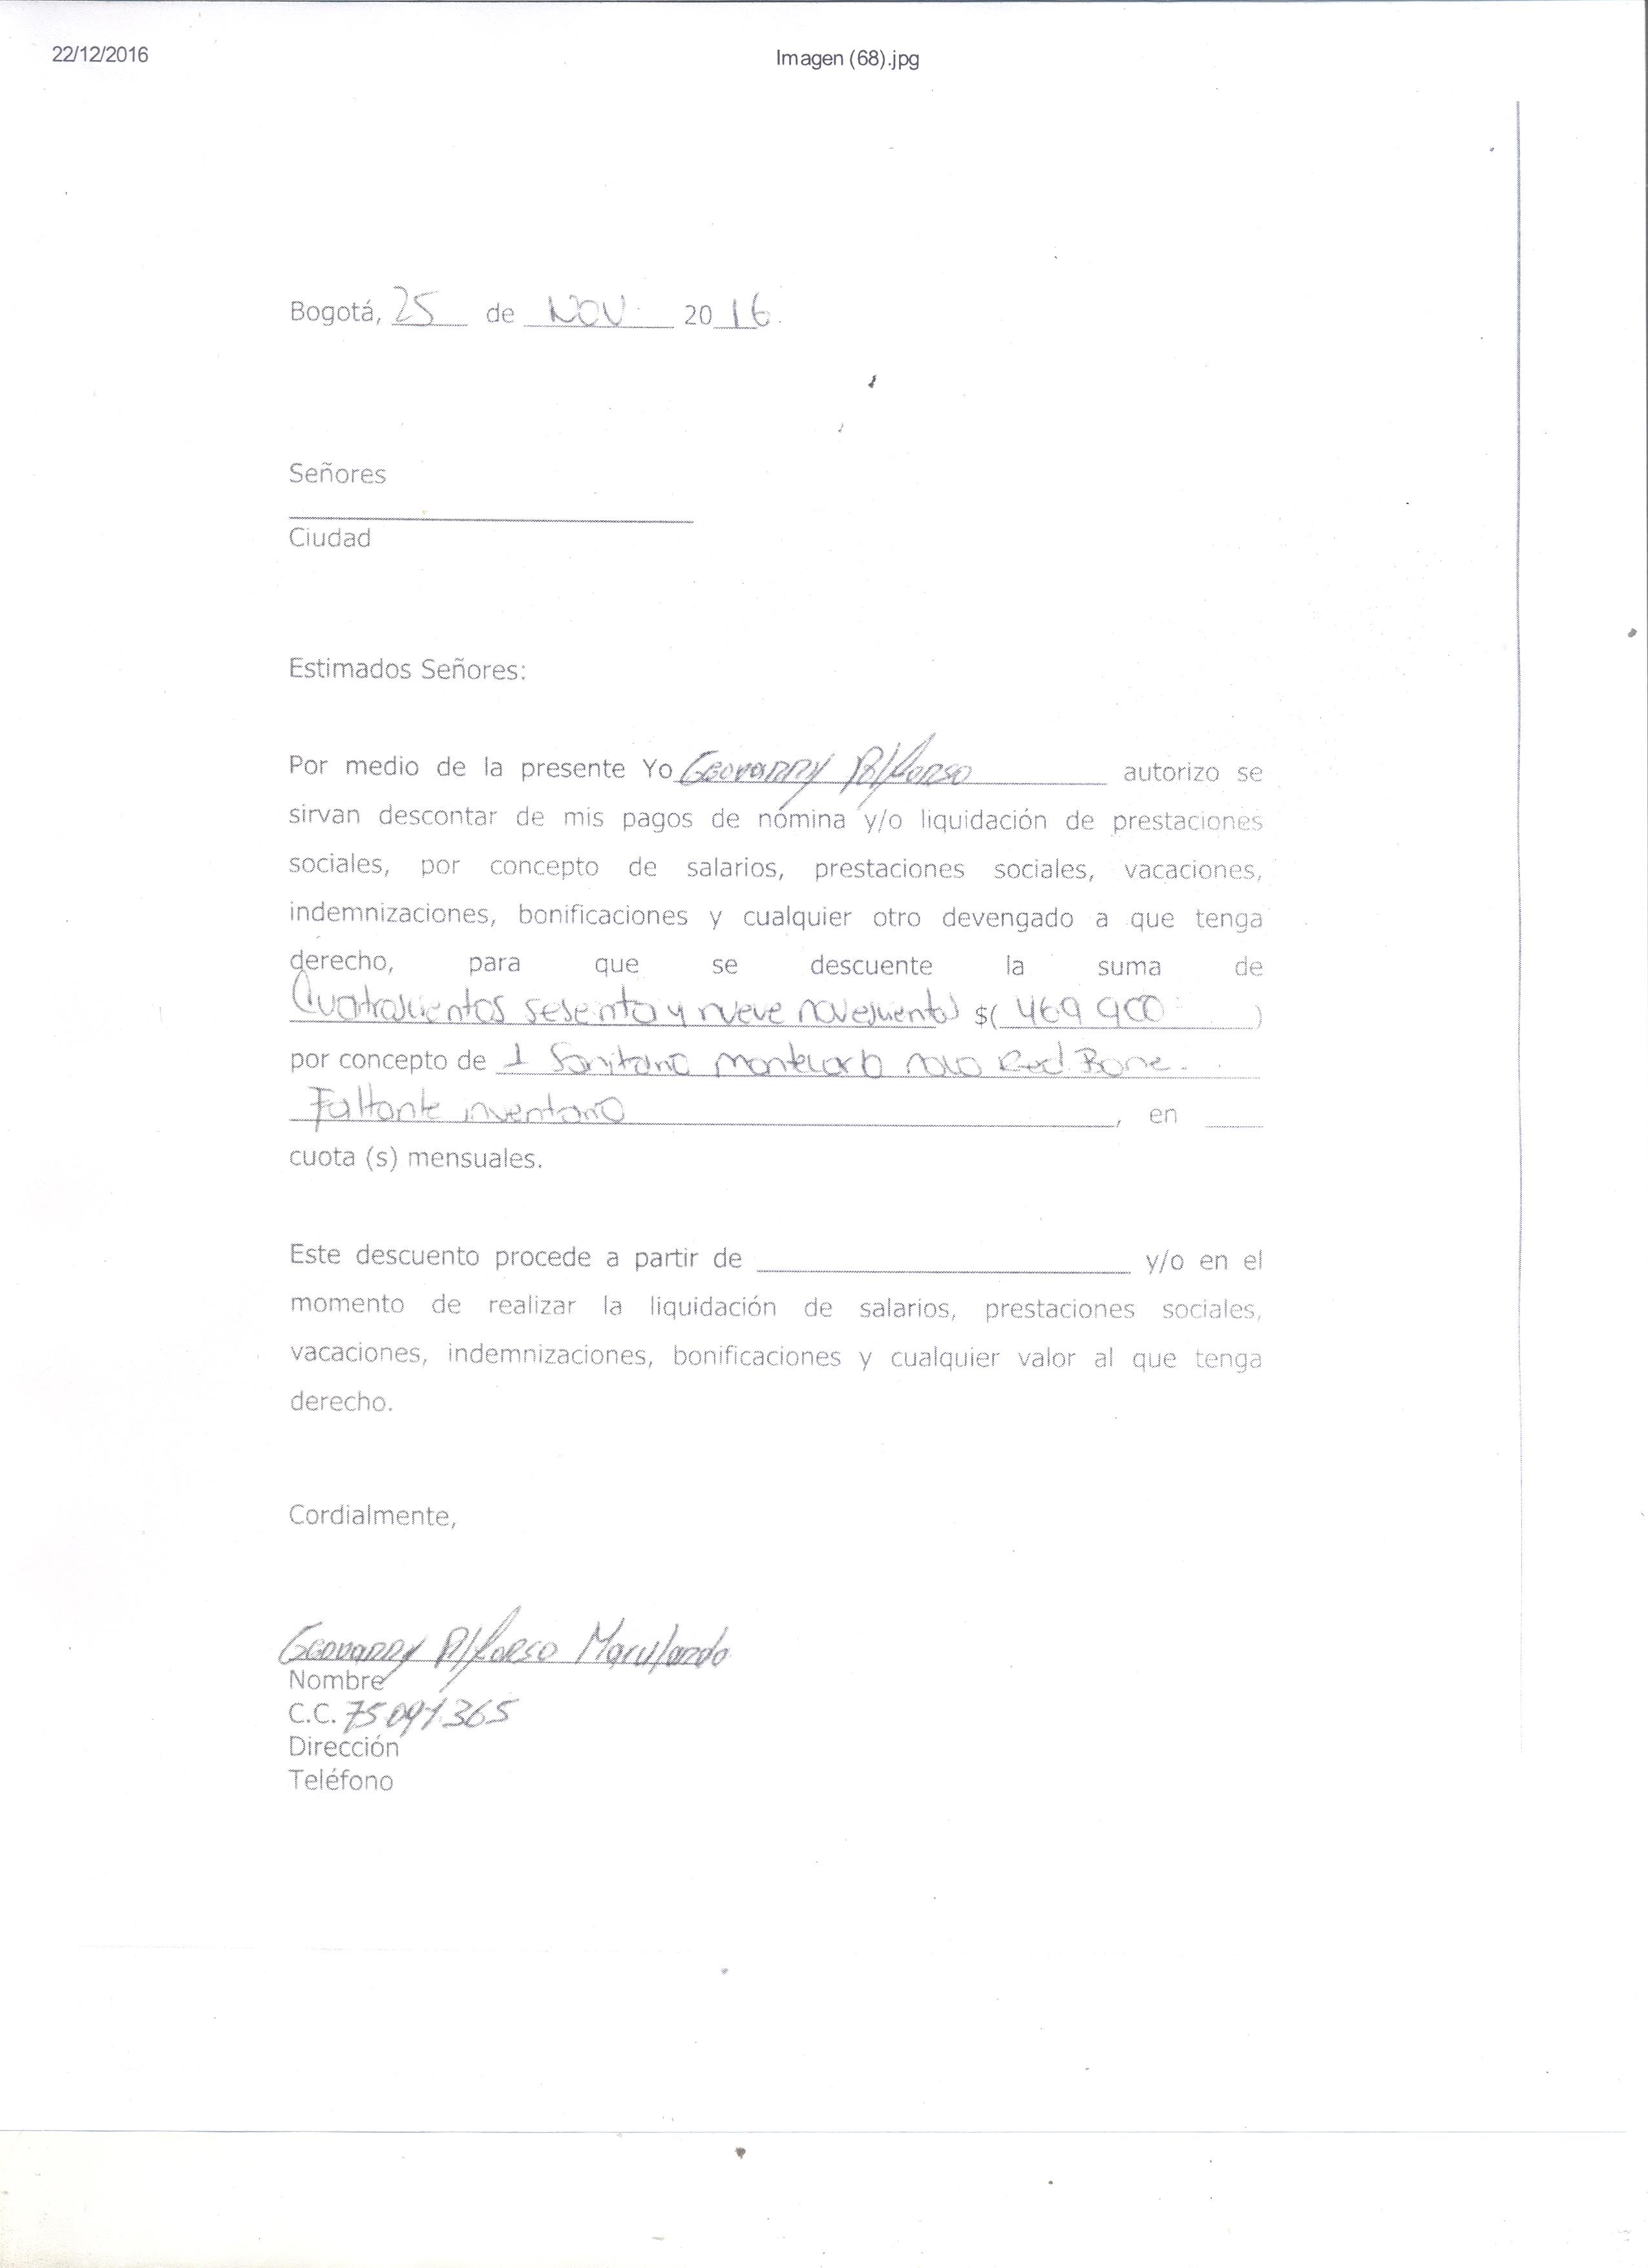 22/12/2016 Imagen (68).jpg
Bogotá, 25 de NOV. 2016.
Señores
Ciudad
Estimados Señores:
Por medio de la presente Yo Geovanny Alfonso autorizo se
sirvan descontar de mis pagos de nómina y/o liquidación de prestaciones
sociales, por concepto de salarios, prestaciones sociales, vacaciones,
indemnizaciones, bonificaciones y cualquier otro devengado a que tenga
derecho, para que se descuente la suma de
Cuatrocientos sesenta y nueve novecientos $( 469 900 )
por concepto de 1 Sanitario Red. Bone.
Faltante inventario , en
cuota (s) mensuales.
Este descuento procede a partir de y/o en el
momento de realizar la liquidación de salarios, prestaciones sociales,
vacaciones, indemnizaciones, bonificaciones y cualquier valor al que tenga
derecho.
Cordialmente,
Geovanny Alfonso Marulando
Nombre
C.C. 75091365
Dirección
Teléfono